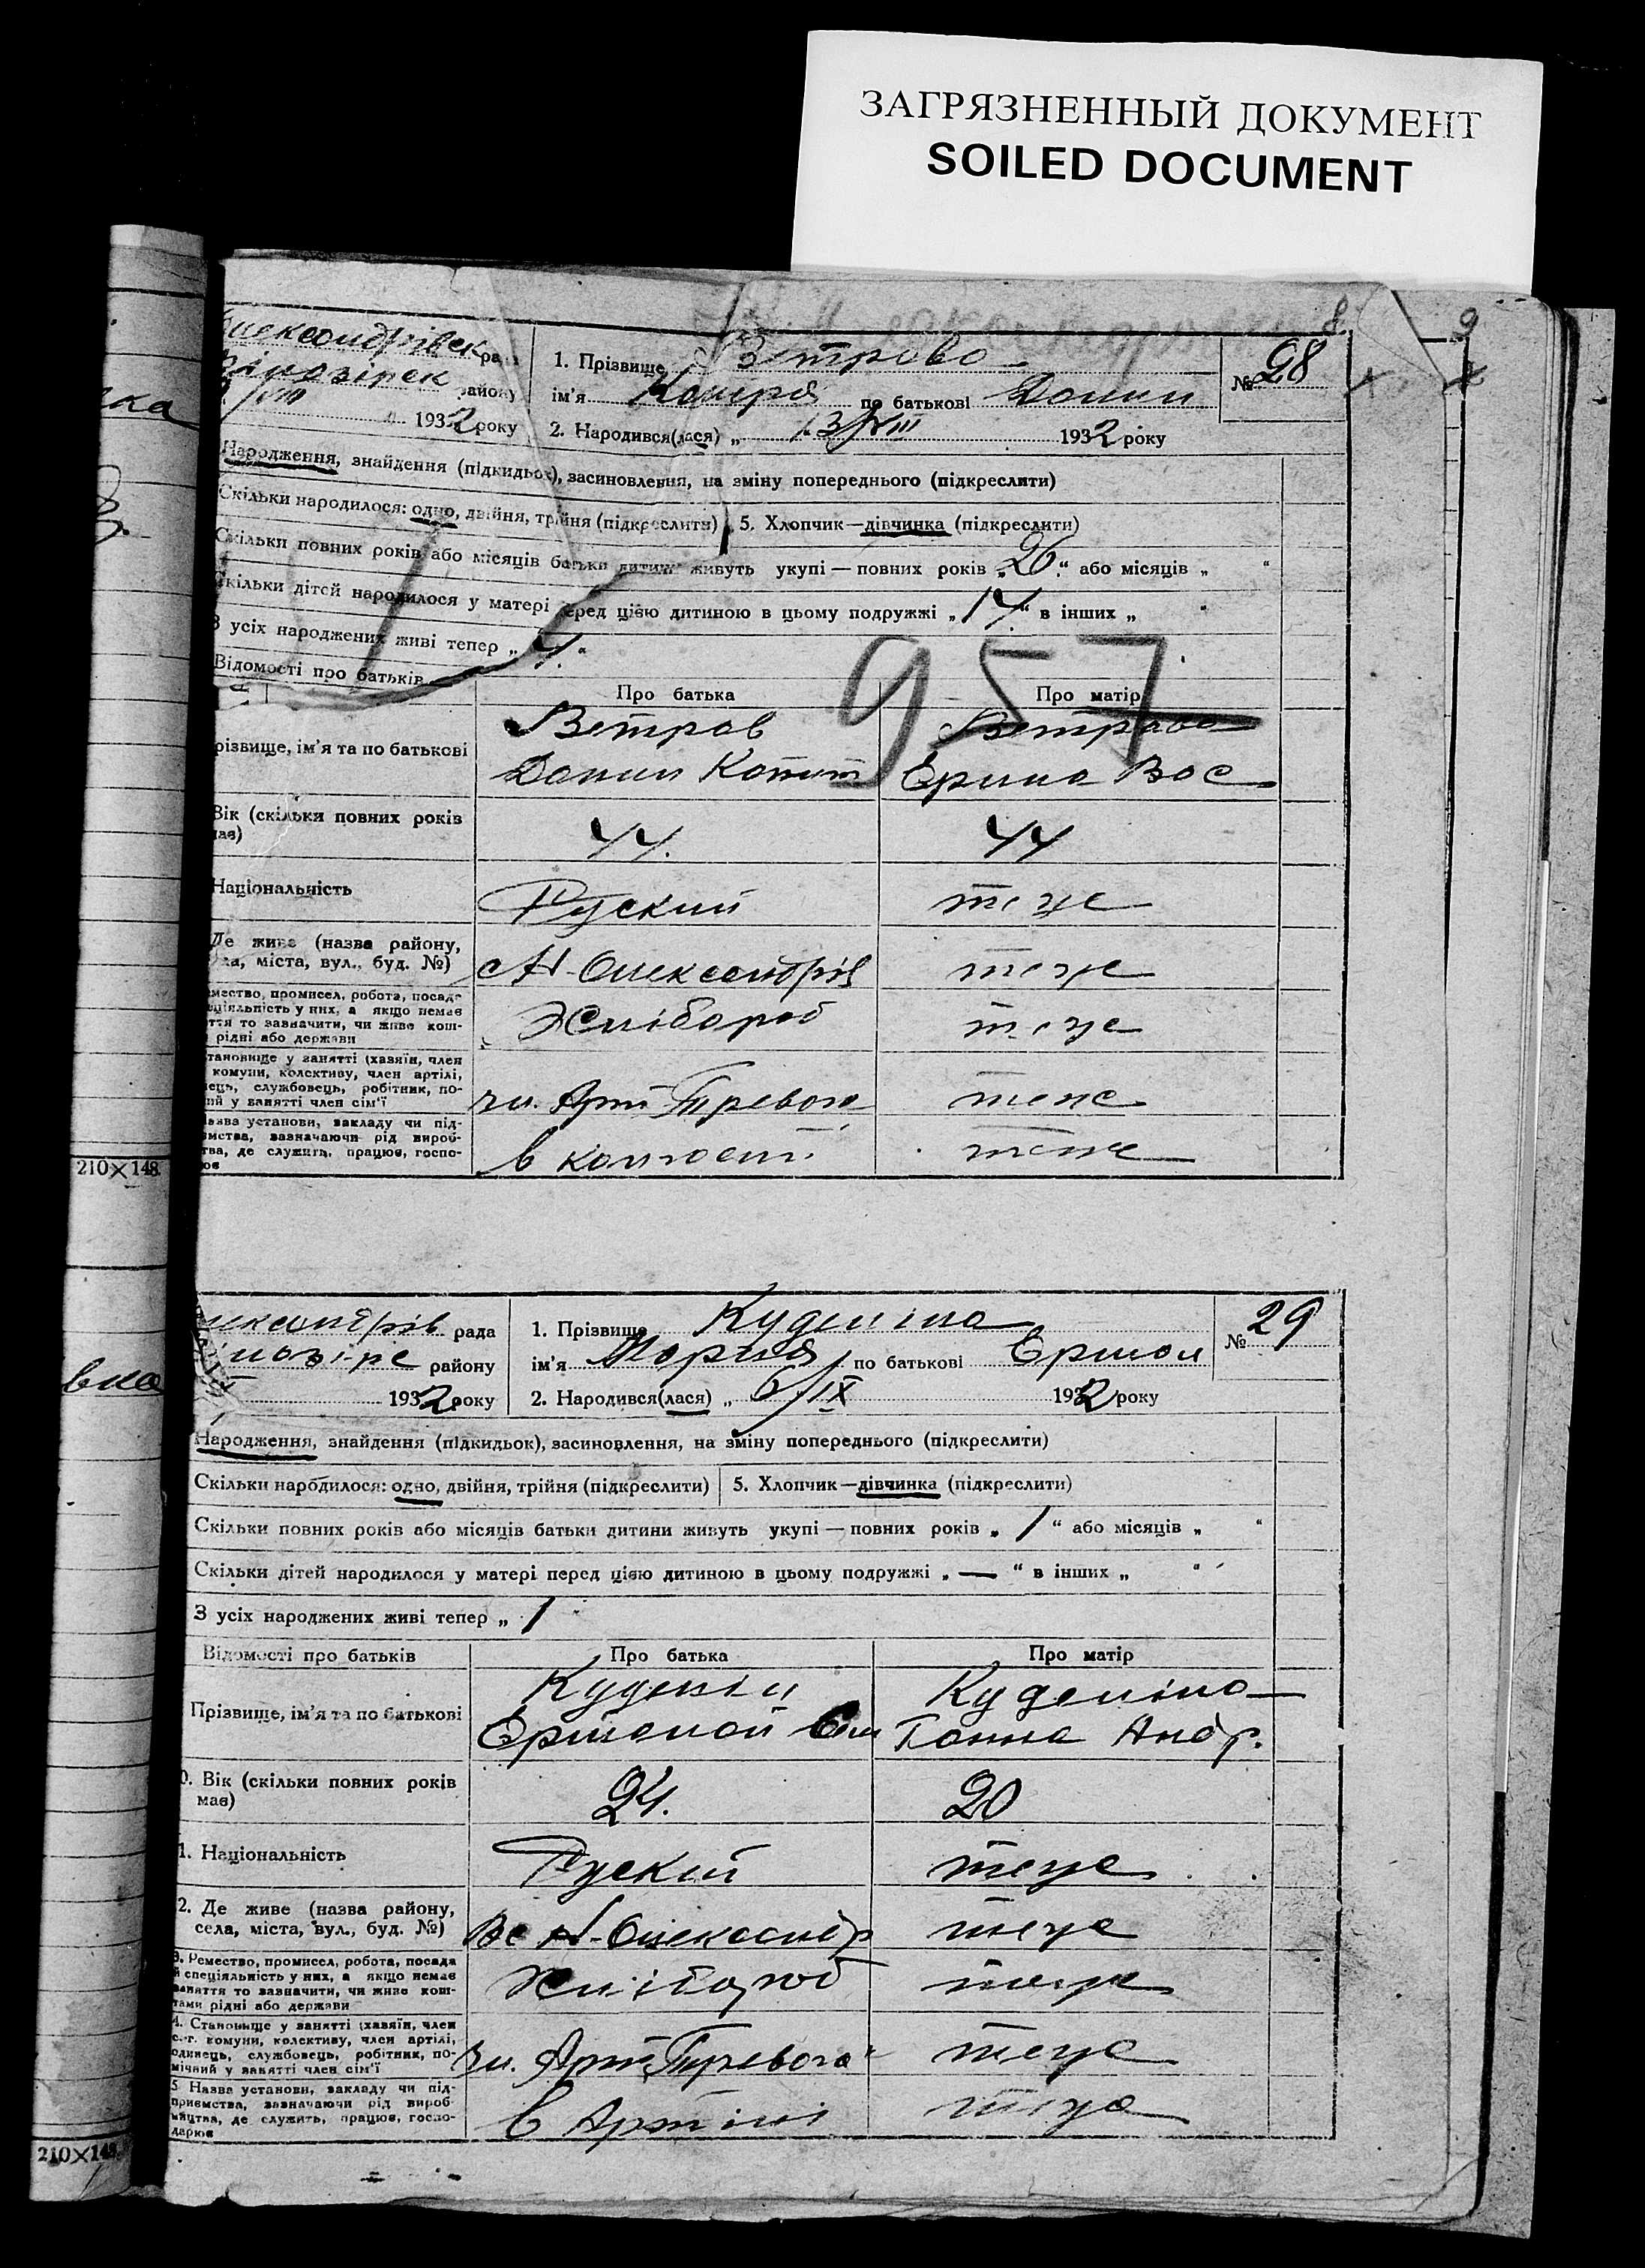 ЗАГРЯЗНЕННЫЙ ДОКУМЕНТ
SOILED DOCUMENT
8
9
рада
району
1932 року
1. Прізвище Ветрова
№ 28
ім'я по батькові Данил
2. Народився(лася) „ 13/VIII 1932 року
Народження, знайдення (підкидьок), засиновлення, на зміну попереднього (підкреслити)
Скільки народилося: одно, двійня, трійня (підкреслити) 5. Хлопчик—дівчинка (підкреслити)
Скільки повних років або місяців батьки дитини живуть укупі — повних років „ 26 “ або місяців „ “
Скільки дітей народилося у матері перед цією дитиною в цьому подружжі „ “ в інших „ “
З усіх народжених живі тепер „ 4. “
957
Відомості про батьків
Про батька
Про матір
різвище, ім'я та по батькові
Ветров
Данил
Ветрова
Ерина Вас
Вік (скільки повних років має)
44.
44
Національність
Руский
теже
Де живе (назва району,
ла, міста, вул., буд. №)
с Н-Олександрів
теже
мество, промисел, робота, посада
ціяльність у них, а якщо немає
ття то зазначити, чи живе кош-
рідні або держави
Хлібороб
теже
тановище у занятті (хазяїн, член
комуни, колективу, член артілі,
нець, службовець, робітник, по-
ний у занятті член сім'ї
чл. Арт Тревога
теже
азва установи, закладу чи під-
мства, зазначаючи рід вироб-
тва, де служить, працює, госпо-
ює
в
теже
210×148
рада
району
1932 року
1. Прізвище Куделіна
№ 29
ім'я Мария по батькові Ермол
2. Народився(лася) „ 6/IX 1932 року
Народження, знайдення (підкидьок), засиновлення, на зміну попереднього (підкреслити)
Скільки народилося: одно, двійня, трійня (підкреслити) 5. Хлопчик—дівчинка (підкреслити)
Скільки повних років або місяців батьки дитини живуть укупі — повних років „ 1 “ або місяців „ “
Скільки дітей народилося у матері перед цією дитиною в цьому подружжі „ — “ в інших „ “
З усіх народжених живі тепер „ 1
Відомості про батьків
Про батька
Про матір
Прізвище, ім'я та по батькові
Куделін
Ермолай
Куделіна
Ганна Андр.
0. Вік (скільки повних років
має)
24.
20
1. Національність
Рускій
теже
2. Де живе (назва району,
села, міста, вул., буд. №)
В с Н-Олександр
теже
3. Ремество, промисел, робота, посада
й спеціяльність у них, а якщо немає
заняття то зазначити, чи живе кош-
тами рідні або держави
Хлібороб
теже
4. Становище у занятті (хазяїн, член
с.-г. комуни, колективу, член артілі,
одинець, службовець, робітник, по-
мічний у занятті член сім'ї
чл. Арт „Тревога“
теже
5 Назва установи, закладу чи під-
приємства, зазначаючи рід вироб-
ництва, де служить, працює, госпо-
дарює
в Артілі
теже
210×148